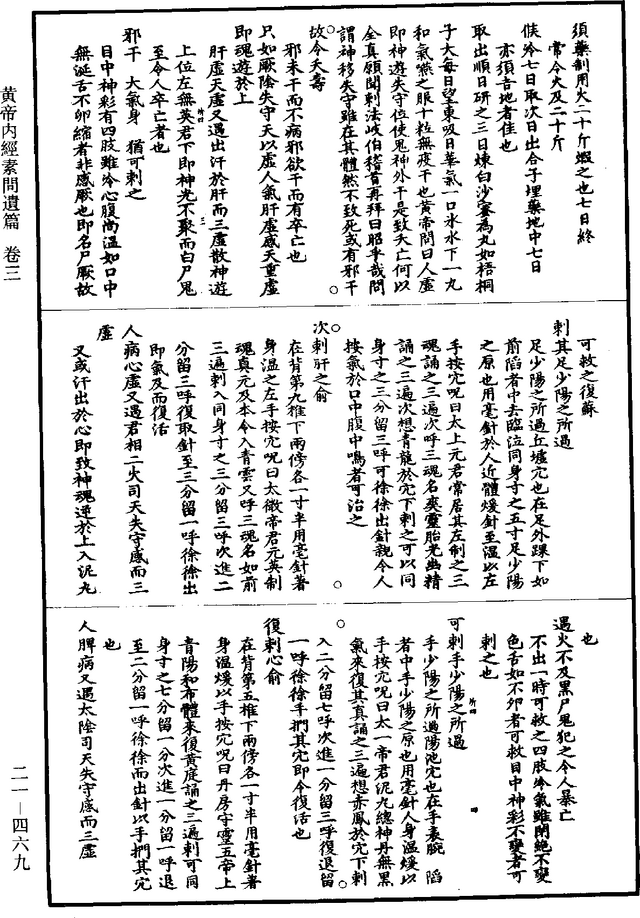 須藥制用火二十斤煆之也七日終
常令火及二十斤
候冷七日取次日出合子埋藥地中七日
亦須吉地者佳也
取出順日研之三日煉白沙蜜為丸如梧桐
子大每日望東吸日華氣一口冰水下一丸
和氣嚥之服十粒無疫干也黃帝問曰人虛
即神遊失守位使鬼神外干是致夭亡何以
全真願聞刺法岐伯稽首再拜曰昭乎哉問
謂神移失守雖在其體然不致死或有邪干
故令夭壽
邪未干而不病邪欲干而有卒亡也
只如厥陰失守天以虛人氣肝虛感天重虛
即魂遊於上
肝虛天虛又遇出汗於肝而三虛散神遊
上位左無英君下即神光不聚而白尸鬼
至令人卒亡者也
邪干　大氣身　猶可刺之
目中神彩有四肢雖冷心腹尚溫如口中
無涎舌不卵縮者非感厥也即名尸厥故
可救之復蘇
刺其足少陽之所過
足少陽之所過丘墟穴也在足外踝下如
前陷者中去臨泣同身寸之五寸足少陽
之原也用毫針於人近體煖針至溫以左
手按穴呪曰太上元君常居其左制之三
魂誦之三遍次呼三魂名爽靈胎光幽精
誦之三遍次想青龍於穴下刺之可以同
身寸之三分留三呼可徐徐出針親令人
按氣於口中腹中鳴者可治之
次刺肝之俞
在背第九椎下兩傍各一寸半用毫針著
身溫之左手按穴呪曰太微帝君元英制
魂真元及本令入青雲又呼三魂名如前
三遍刺入同身寸之三分留三呼次進二
分留三呼復取針至三分留一呼徐徐出
即氣及而復活
人病心虛又遇君相二火司天失守感而三
虛
又或汗出於心即致神魂逆於上入泥丸
也
遇火不及黑尸鬼犯之令人暴亡
不出一時可救之四肢冷氣雖閉絕不變
色舌如不卵者可救目中神彩不變者可
刺之也
可刺手少陽之所過
手少陽之所過陽池穴也在手表腕　陷
者中手少陽之原也用毫針人身溫煖以
手按穴呪曰太一帝君泥丸總神丹無黑
氣來復其真誦之三遍想赤鳳於穴下刺
入二分留七呼次進一分留三呼復退留
一呼徐徐手捫其穴即令復活也
復刺心俞
在背第五椎下兩傍各一寸半用毫針著
身溫煖以手按穴呪曰丹房守靈五帝上
青陽和布體來復黃庭誦之三遍刺可同
身寸之七分留一分次進一分留一呼退
至二分留一呼徐徐而出針以手捫其穴
也
人脾病又遇太陰司天失守感而三虛
黃帝內經素問遺篇　卷三
二一—四六九